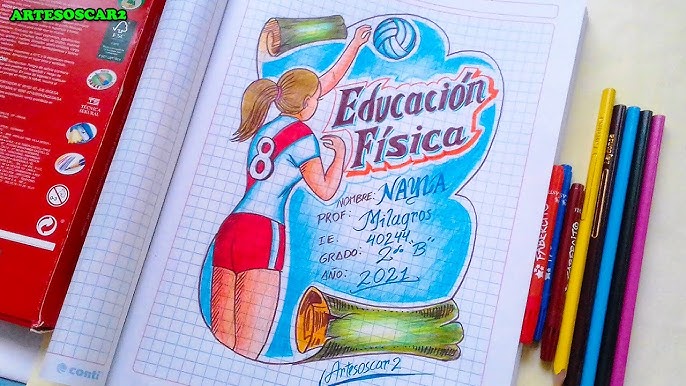 ARTESOSCAR2
Educación
Física
8
NOMBRE: NAYLA
PROF: Milagros
IE: 40244
GRADO: 2do "B"
AÑO: 2021
Artesoscar2
conti